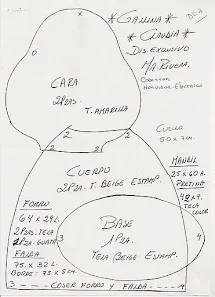 * GALLINA *
* CLAUDIA *
DIS. EXCLUSIVO
MA. RIVERA.
CARA
2 PZAS.
T. AMARILLA
CUELLO
50 x 7 cm.
2 2
2 2
CUERPO
2 PZA. T. BEIGE ESTAMP.
MANDIL
25 x 60 A.
PRETINA
TELA
COLOR
FORRO
64 x 29 L.
2 PZAS. TELA
1 PZA. GUATA
FALDA
75 x 32 L.
BORDE: 75 x 5 cm.
BASE
1 PZA.
TELA BEIGE ESTAMP.
3
4
3 COSER FORRO Y FALDA 4